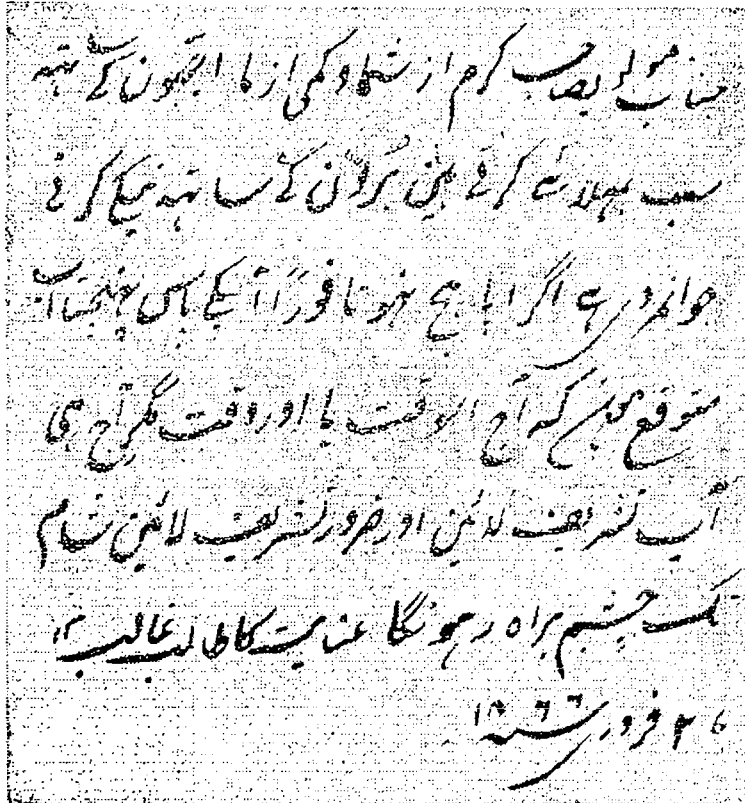 جناب مولویصاحب کرم از شما و کمی از ما اچہون کے ساتہہ
سب بہلائی کرتے ہین بُرون کے ساتہہ نیکی کرنی
جوانمردی ہے اگر اپاہج نہوتا فوراً آپکے پاس پہنچتا اب
متوقع ہون کہ آج اسوقت یا اور وقت مگر آج ہی
آپ تشریف لائین اور ضرور تشریف لائین شام
تک چشم براہ رہونگا عنایت کا طالب غالب ۱۲
۲۶ فروری سنہ ۱۸۶۶